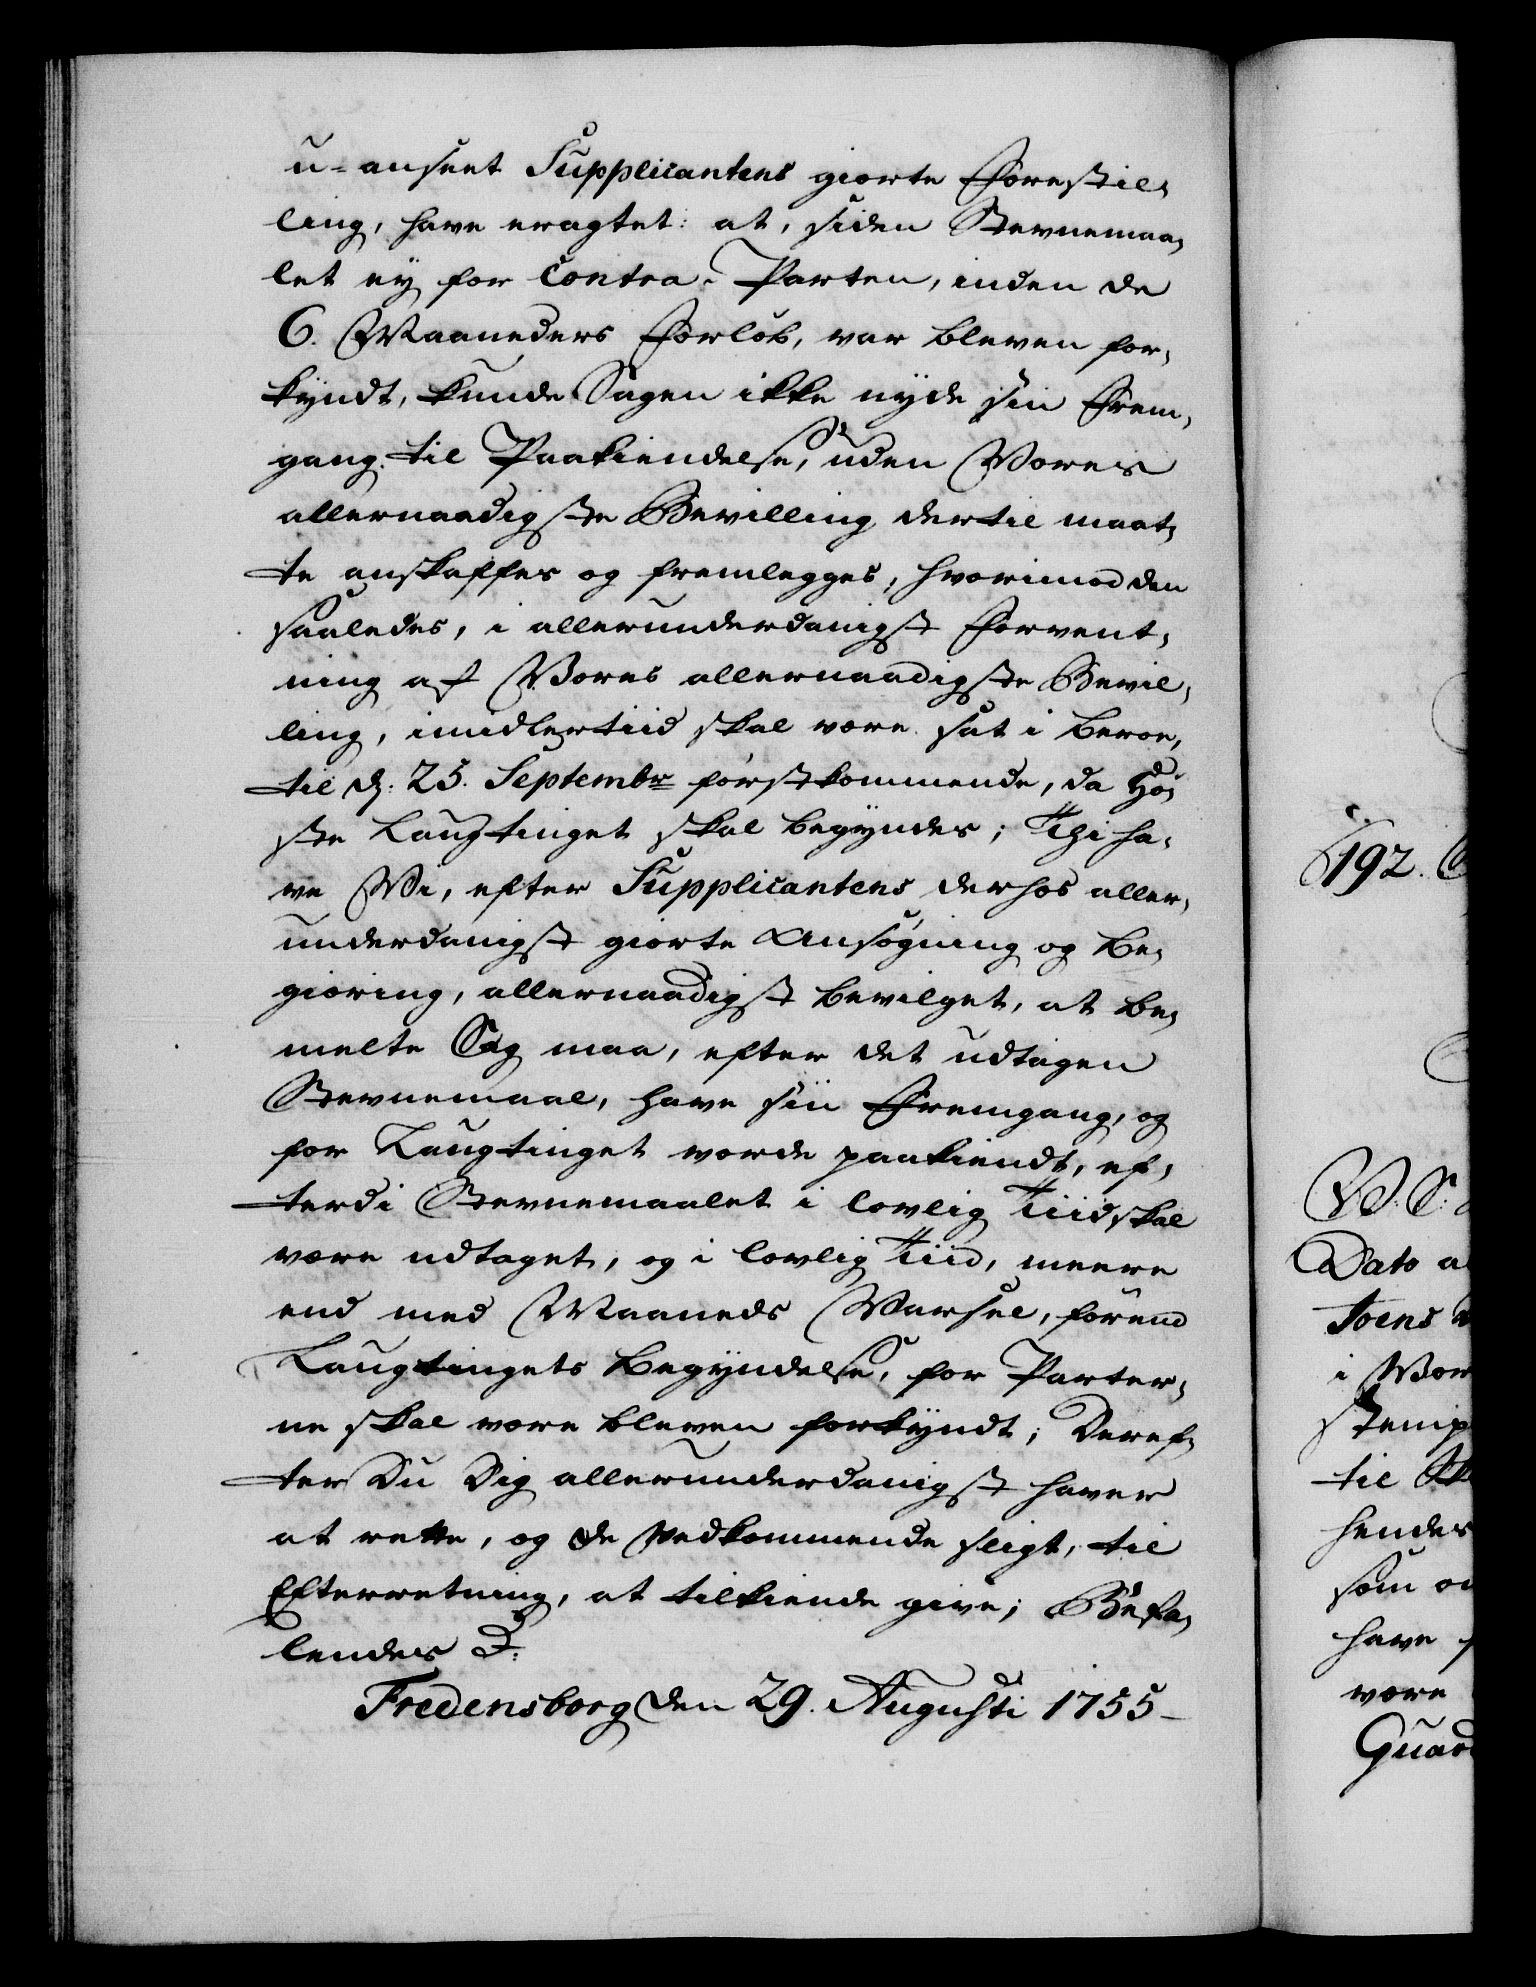 u-anseet Supplicantens giorte Forestil-
ling, have eragtet: at, siden Stevnemaa-
let ey for Contra-Parten, inden de
6. Maaneders Forløb, var bleven for-
kyndt, kunde Sagen ikke nyde sin Frem-
gang til Paakiendelse, uden Vores
allernaadigste Bevilling dertil maat-
te anskaffes og fremlegges, hvorimod den
saaledes, i allerunderdanigst Forvent-
ning af Vores allernaadigste Bevil-
ling, imidlertiid skal være sat i Beroe,
til d: 25. Septembr førstkommende, da Hø-
ste Laugtinget skal begyndes; Thi ha-
ve Vi, efter Supplicantens derhos aller-
underdanigst giorte Ansøgning og Be-
giæring, allernaadigst bevilget, at be-
melte Sag maa, efter det udtagen
Stevnemaal, have sin Fremgang, og
for Laugtinget worde paakiendt, ef-
terdi Stevnemaalet i lovlig Tiid skal
være udtaget, og i lovlig Tiid, meere
end med Maaneds Varsel, førend
Laugtingets Begyndelse, for Parter-
ne skal være bleven forkyndt; Deref-
ter Du Dig allerunderdanigst haver
at rette, og de Vedkommende sligt, til
Efterretning, at tilkiende give; Befa-
lendes D:
Fredensborg den 29. Augusti 1755
192.
V. S:
Dato a
Joens
i Vor
Stemp
til
hendes
som
have
være
Guard